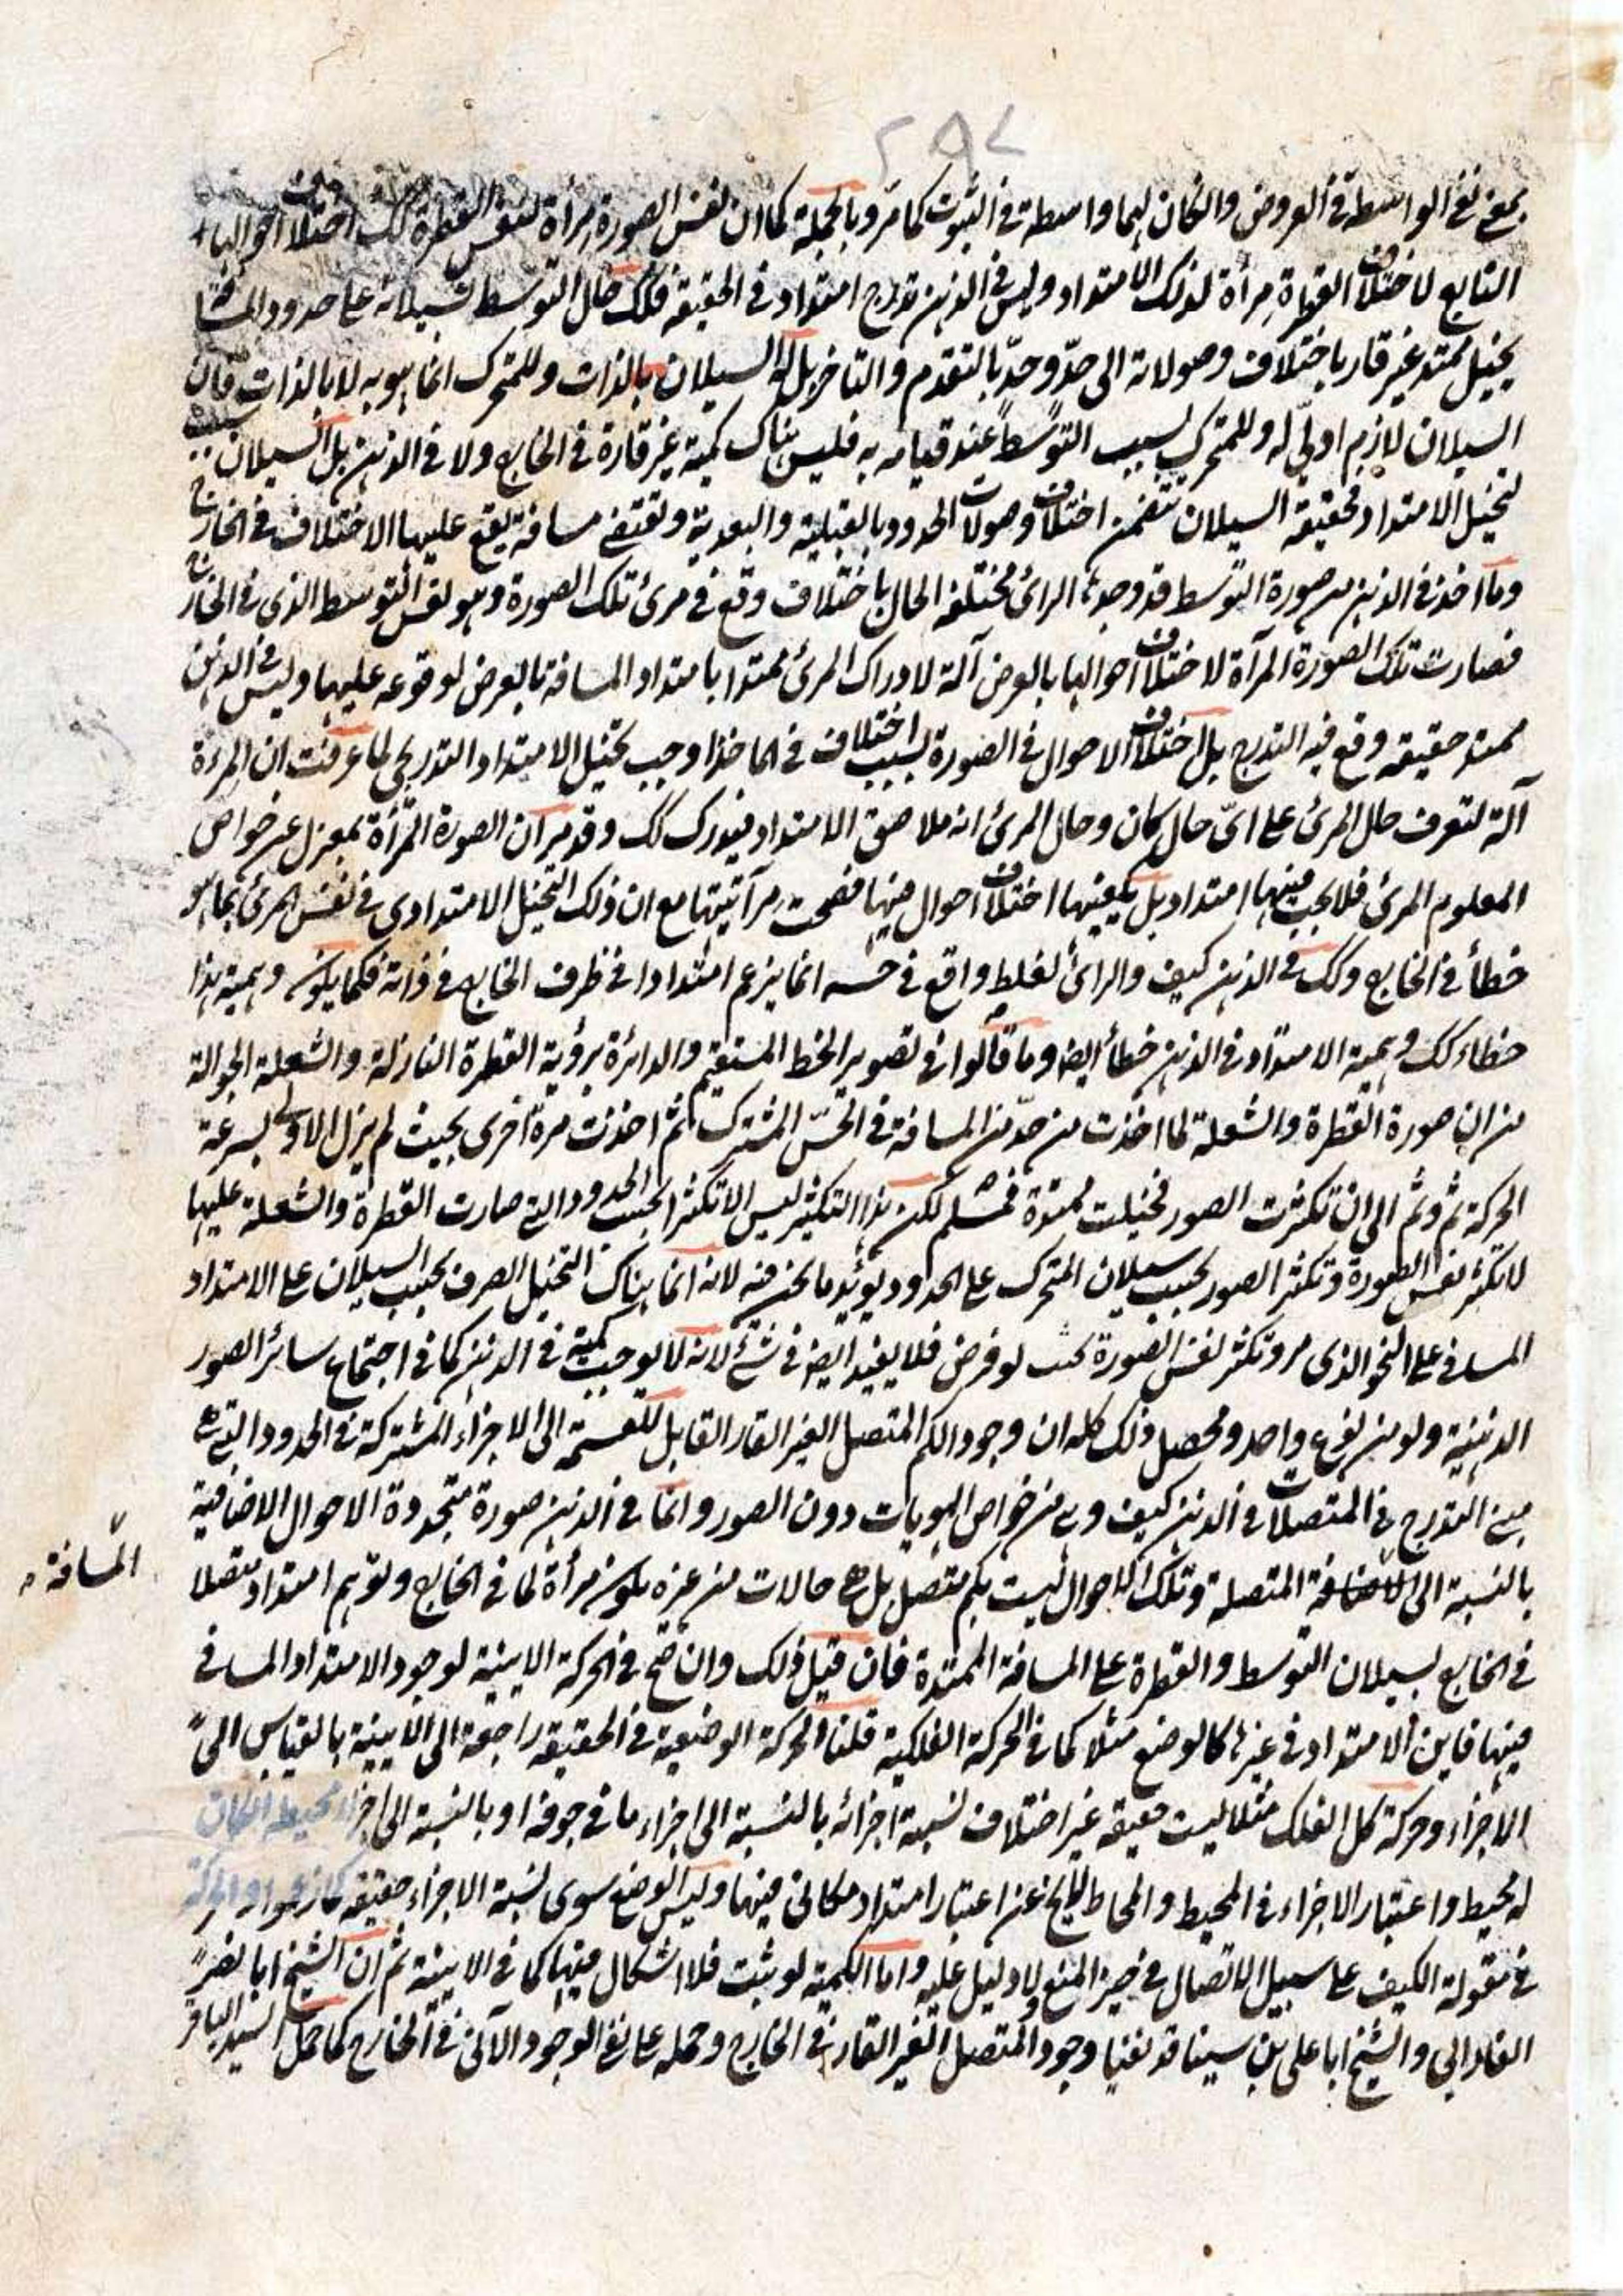 ٢٩٧
بمعنى نفى الواسطة فى العروض وان كان لهما واسطة فى الثبوت كما مرّ وبالجملة كما ان نفس الصورة مرأة لنفس القطرة كك اختلاف احوالها
التابع لاختلاف القطرة مرأة لذلك الامتداد وليس فى الذهن تدرج امتداد فى الحقيقة فكك حال التوسط بسيلانه على حدود المسافة
يخيل ممتد غير قار باختلاف وصولاته الى حدّ وحدّ بالتقدم والتاخر بل له السيلان بالذات وللمتحرك انما هو به لا بالذات فان
السيلان لازم اولىّ له وللمتحرك بسبب التوسط عند قيامه به فليس هناك كمية غير قارة فى الخارج ولا فى الذهن بل السيلان سبب
لتخيل الامتداد فحقيقة السيلان تتضمن اختلاف وصولات الحدود بالقبلية والبعدية وتقتضى مسافة يقع عليها الاختلاف فى الخارج
وما اخذ فى الذهن من صورة التوسط قد وجدها الرائى مختلفة الحال باختلاف وقع فى مرئى تلك الصورة وهو نفس التوسط الذى فى الخارج
فصارت تلك الصورة المرآة لاختلاف احوالها بالعرض آلة لادراك المرئى ممتدا بامتداد المسافة بالعرض لوقوعه عليها وليس فى الذهن
ممتد حقيقة وقع فيه التدرج بل اختلاف الاحوال فى الصورة بسبب اختلاف فى الماخذ اوجب تخيل الامتداد التدريجى لما عرفت ان المرءة
آلة لتعرف حال المرئى على اىّ حال كان وحال المرئى انه ملاصق الامتداد فيدرك كك وقد مر ان الصورة المرّأة بمعزل عن خواص
المعلوم المرئى فلا يجب فيها امتداد بل يكفيها اختلاف احوال فيها فصحت مرآتيتها مع ان ذلك التخيل الامتدادى فى نفس المرئى بما هو
خطأ فى الخارج وكك فى الذهن كيف والرائى لغلط واقع فى حسه انما يزعم امتدادا فى ظرف الخارج فى ذاته فكما يكون وهمية هذا
خطاء كك وهمية الامتداد فى الذهن خطأ ايضا وما قالوا فى تصوير الخط المستقيم والدائرة برؤية القطرة النازلة والشعلة الجوالة
من ان صورة القطرة والشعلة لما اخذت من حدّ من المسافة فى الحسّ المشترك ثم اخذت مرة اخرى بحيث لم يزل الاولى لسرعة
الحركة ثم وثم الى ان تكثرت الصور فخيلت ممتدة فمسلم لكن هذا التكثير ليس الا تكثرا بحسب الحدود والتى صارت القطرة والشعلة عليها
لا تكثر نفس الصورة وتكثر الصور بحسب سيلان المتحرك على الحدود يؤيد ما نحن فيه لانه انما هناك التخيل الصرف بحسب السيلان على الامتداد
المسافى على النحو الذى مر وتكثر نفس الصورة بحسب لو فرض فلا يفيد ايضا فى شئ لانه لا يوجب كمية فى الذهن كما فى اجتماع سائر الصور
الذهنية ولو من نوع واحد ومحصل ذلك كله ان وجود الكم المتصل الغير القار القابل للقسمة الى الاجزاء المشتركة فى الحدود التى هى
مبنى التدرج فى المتصلات فى الذهن كيف وهى من خواص الهويات دون الصور وانما فى الذهن صورة متجددة الاحوال الاضافية
بالنسبة الى المتصلة وتلك الاحوال ليست بكم متصل بل هى حالات من غيره يكون مرأة لما فى الخارج وتوهم امتداد متصلا
المسافة
فى الخارج بسيلان التوسط والقطرة على المسافة الممتدة فان قيل ذلك وان صح فى الحركة الاينية لوجود الامتداد المسافى
فيها فاين الامتداد فى غيرها كالوضع مثلا كما فى الحركة الفلكية قلنا الحركة الوضعية فى الحقيقة راجعة الى الاينية بالقياس الى
الاجزاء وحركة كل الفلك مثلا ليست حقيقة غير اختلاف نسبة اجزائه بالنسبة الى اجزاء ما فى جوفه او بالنسبة الى اجزاء محيطه ان كان
له محيط واعتبار الاجزاء فى المحيط والمحاط لا يخ عن اعتبار امتداد مكانى فيها وليس الوضع سوى نسبة الاجزاء حقيقة كما زعموا والحركة
فى مقولة الكيف على سبيل الاتصال فى حيز المنع ولا دليل عليه واما الكمية لو ثبت فلا اشكال فيها كما فى الاينية ثم ان الشيخ ابا نصر
الفارابى والشيخ ابا على بن سينا قد نفيا وجود المتصل الغير القار فى الخارج وحمله على نفى الوجود الآنى فى الخارج كما حمل السيد الباقر